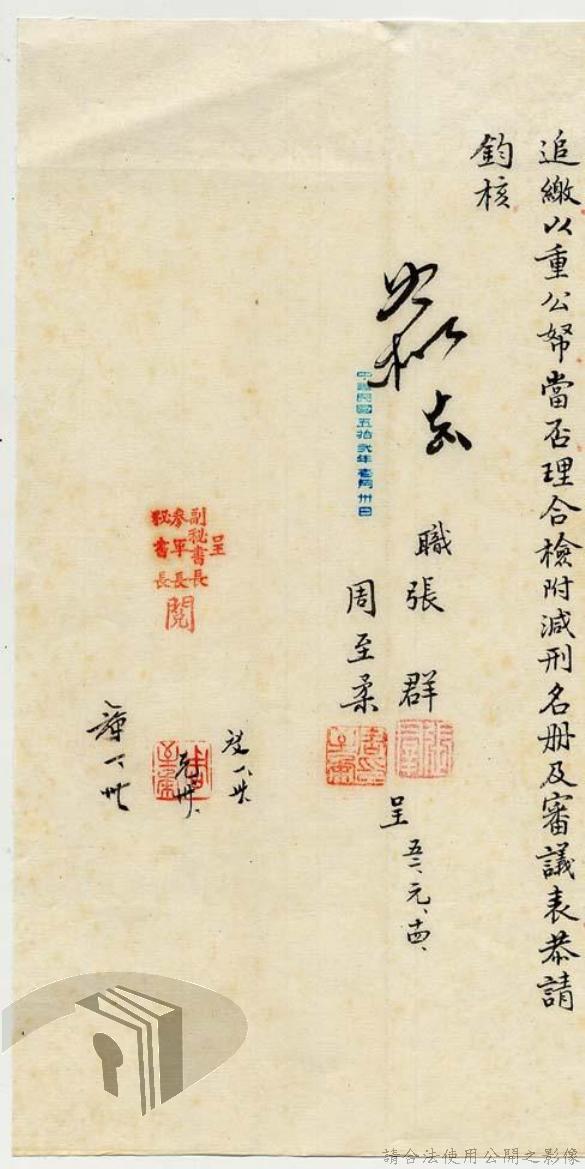 追繳以重公帑當否理合檢附減刑名册及審議表恭請
鈞核
職張群
周至柔
呈 五二、元、十四、
中華民國五拾弍年壹月卅日
呈
副秘書長
參軍長
秘書長
閱
請合法使用公開之影像